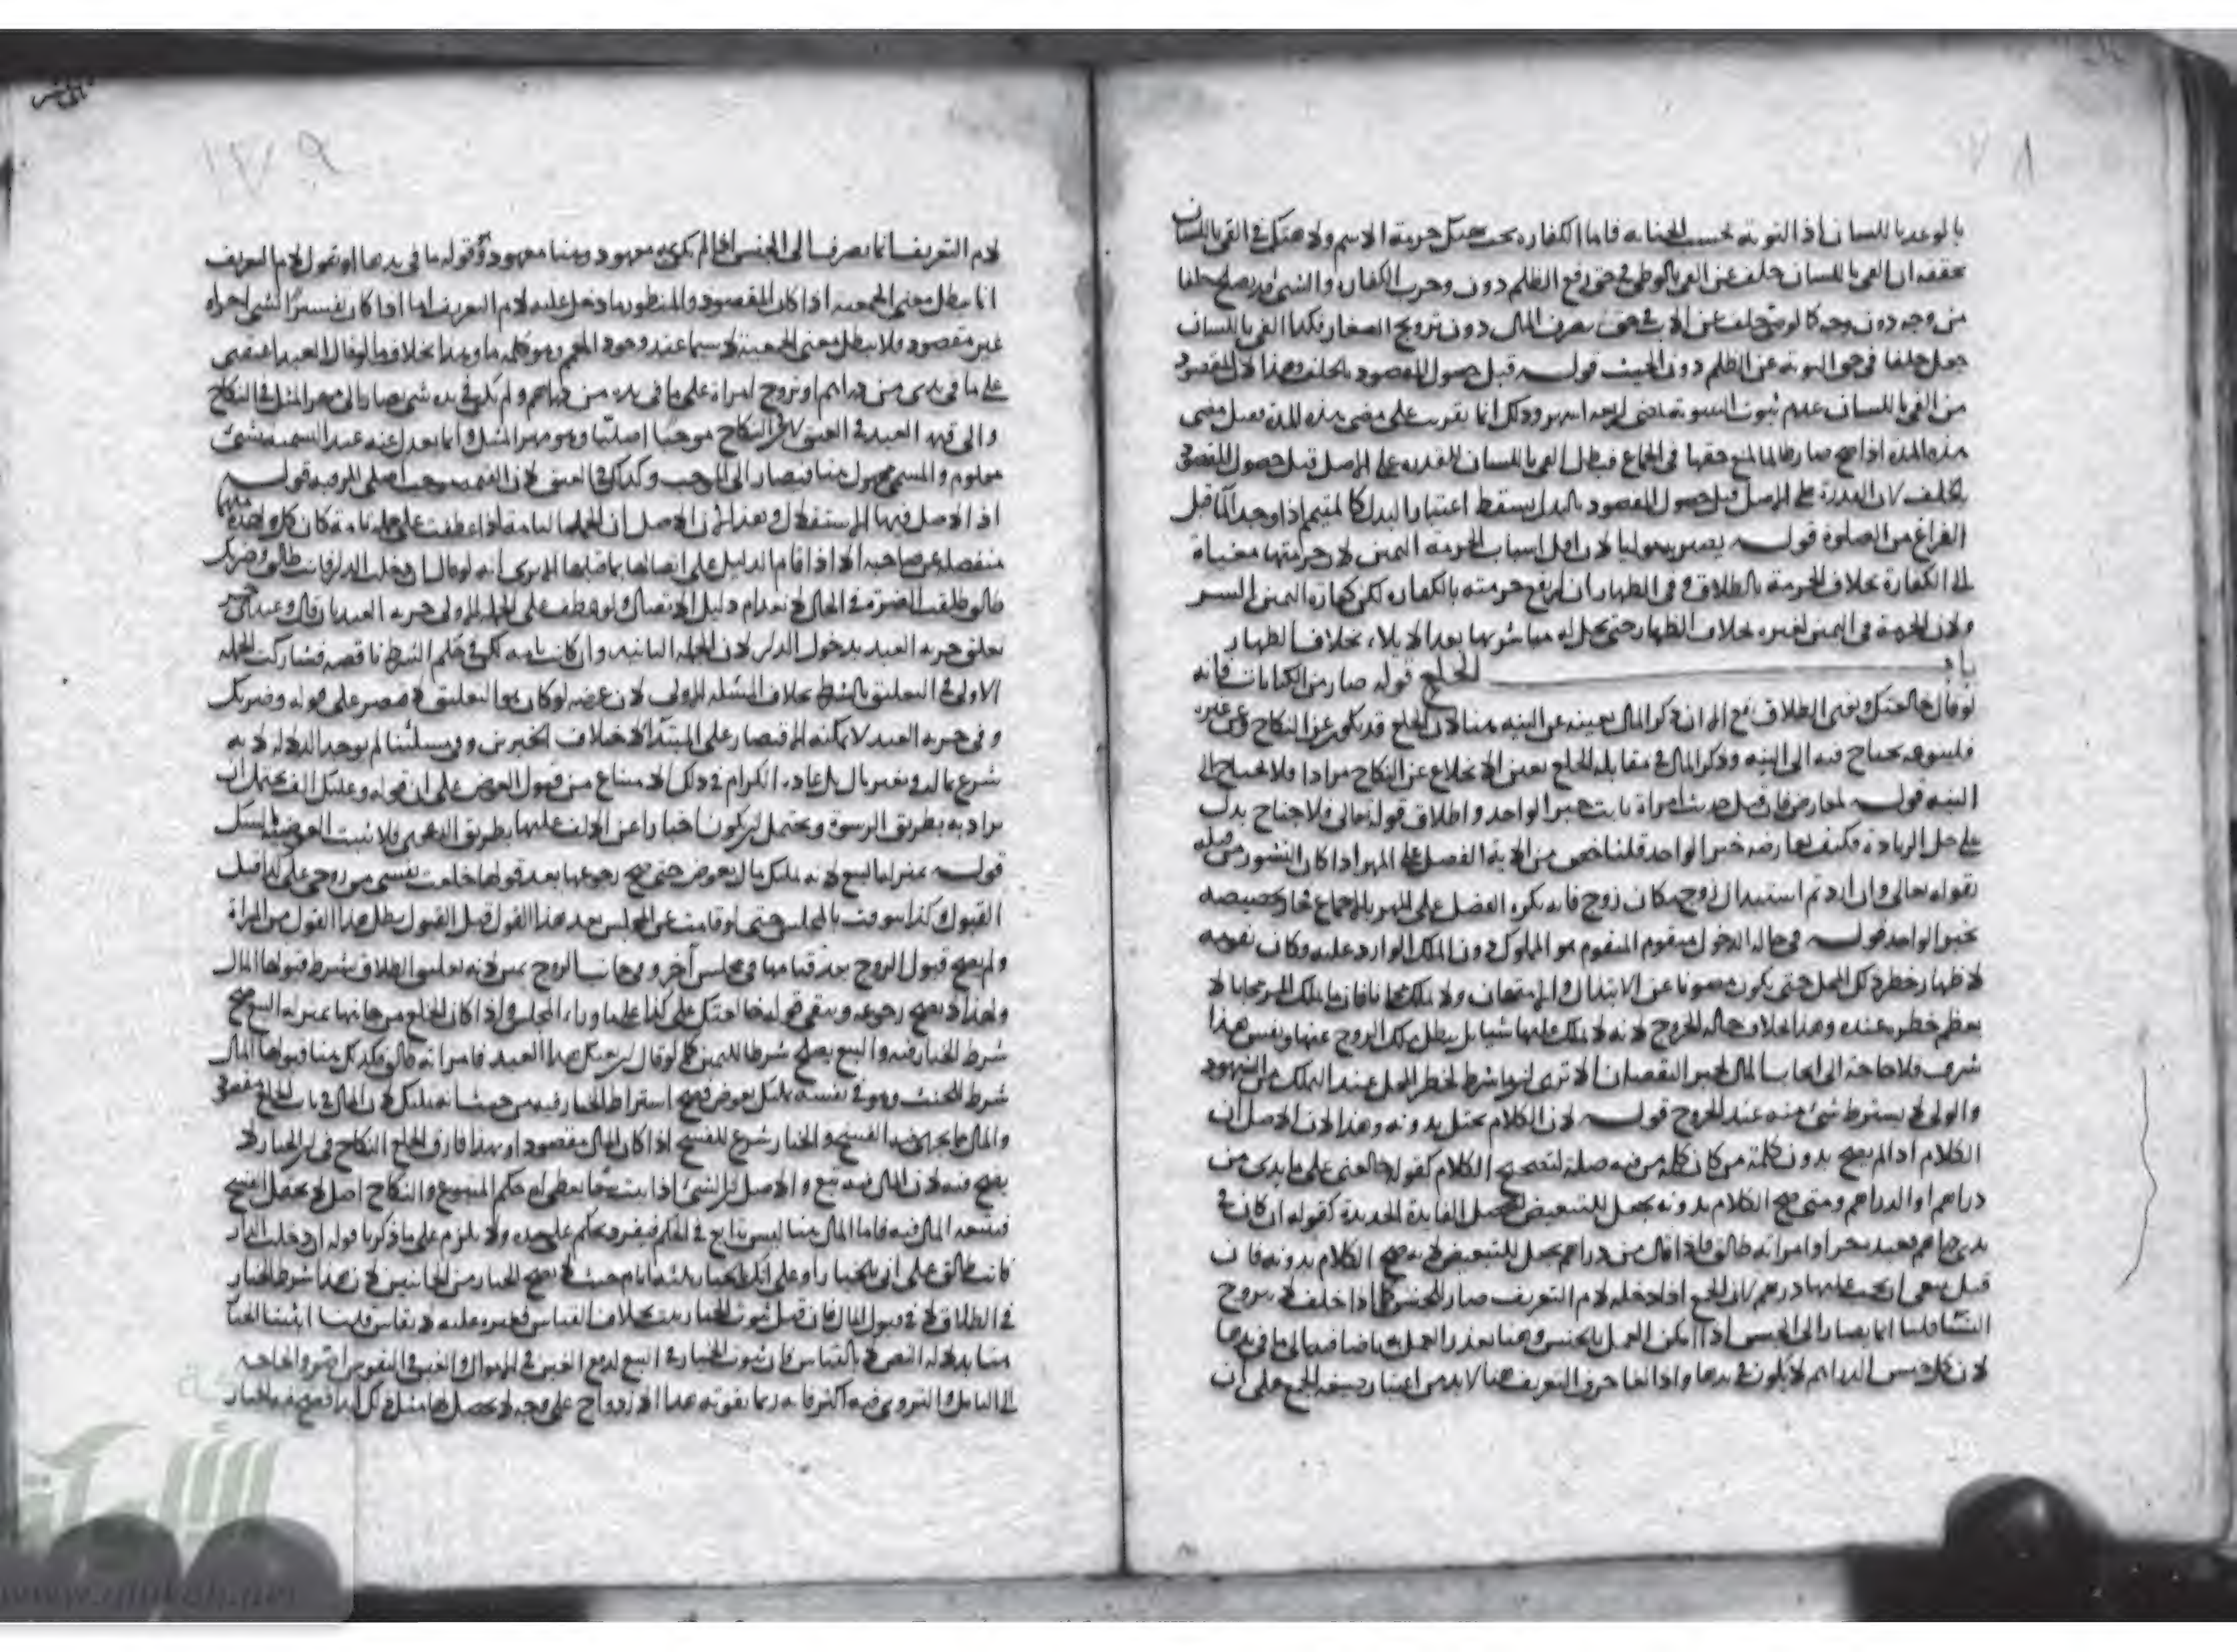 بالوعد باللسان اذ التوبة بحسب الجناية فاما الكفارة تجب بهتك حرمة الاسم ولا هتك في الفئ باللسان
تحققه ان الفئ باللسان خلف عن الفئ بالوطئ في حق رفع الظلم دون وجوب الكفارة والشئ قد يصلح خلفا
من وجه دون وجه كالوصي خلف عن الاب في حق تصرف المال دون تزويج الصغار فكذا الفئ باللسان
جعل خلفا في حق التوبة عن الظلم دون الحنث قوله قبل حصول المقصود بالخلف وهذا لان المقصود
من الفئ باللسان عدم ثبوت البينونة عند مضي اربعة اشهر وذلك انما على مضي هذه المدة فقبل مضي
هذه المدة اذا صح صار ظالما لمنع حقها في الجماع فبطل الفئ باللسان للقدرة على الاصل قبل حصول المقصود
بالخلف لان القدرة على الاصل قبل حصول المقصود بالبدل يسقط اعتبار البدل كالمتيمم اذا وجد الماء قبل
الفراغ من الصلوة قوله يصير موليا لان اقل اسباب الحرمة اليمين لان حرمتها مغياة
الى الكفارة بخلاف الحرمة بالطلاق وفي الظهار ان ارتفع حرمته بالكفارة لكن كفارة اليمين ايسر
ولان الحرمة في اليمين لغيره بخلاف الظهار حتى يحل له مباشرتها بعد الايلاء بخلاف الظهار
باب الخلع قوله صار من الكنايات فانه
لو قال خالعتك ونوى الطلاق يقع الا ان ذكر المال يغنيه عن النية هنا لان الخلع قد يكون عن النكاح وعن غيره
فلتنوعه يحتاج فيه الى النية وذكر المال في مقابلة الخلع يعين الانخلاع عن النكاح مرادا فلا يحتاج الى
النية قوله لمعارض فان قيل حديث امراة ثابت خبر الواحد واطلاق قوله تعالى فلا جناح يدل
على حل الزيادة فكيف يعارضه خبر الواحد قلنا خص من الاية الفضل على المهر اذا كان النشوز من قبله
بقوله تعالى وان اردتم استبدال زوج مكان زوج فانه يكره الفضل على المهر بالاجماع فجاز تخصيصه
بخبر الواحد قوله في حالة الدخول متقوم المتقوم هو المملوك دون الملك الوارد عليه وكان تقومه
لاظهار خطر ذلك المحل حتى يكون مصونا عن الابتذال والامتهان ولا يملك مجانا فان ما يملك المرء مجانا لا
يعظم خطره عنده وهذا بخلاف حالة الخروج لانه لا يملك عليها شيئا بل يبطل ملك الزوج عنها ونفس هذا
شرف فلا حاجة الى ايجاب المال لجبر النقصان الا ترى ان ما شرط لخطر المحل عند التملك من الشهود
والولي لا يشترط شئ منه عند الخروج قوله لان الكلام يختل بدونه وهذا لان الاصل ان
الكلام اذا لم يصح بدون كلمة من كان كلمة من فيه صلة لتصحيح الكلام كقولها خالعني على ما بيدي من
دراهم او الدراهم ومتى صح الكلام بدونه يجعل للتبعيض لتحصل الفايدة الجديدة كقوله ان كان في
يدي دراهم فعبده حر او امراته طالق فاذا قال من دراهم يجعل للتبعيض لانه صح الكلام بدونه فان
قيل ينبغي ان يجب عليها درهم لان الجمع اذا دخله لام التعريف صار للجنس كما اذا حلف لا يتزوج
النساء قلنا انما يصار الى الجنس اذا امكن العمل بالجنس وهنا تعذر العمل به مضافا الى ما في يدها
لان كل جنس الدراهم لا يكون في يدها واذا لغا حرف التعريف هنا لا بد من اعتبار صيغة الجمع على ان
١٧٩
لام التعريف انما يصرف الى الجنس اذا لم يكن معهود وهنا معهود وقوله ما في يدها او نقول لام التعريف
انما يبطل معنى الجمعية اذا كان المقصود والمنظور ما دخل عليه لام التعريف اما اذا كان تفسيرا لشئ اخر
غير مقصود فلا يبطل معنى الجمعية لا سيما عند وجود وهو كلمة ما وهذا بخلاف ما لو قال العبد اعتقني
على ما في يدي من دراهم او تزوج امراة على ما في يده من دراهم ولم يكن في يده شئ يصار الى مهر المثل في النكاح
والى قيمة العبد في العتق لان في النكاح موجبا اصليا وهو مهر المثل وانما يعدل عنه عند التسمية بشئ
معلوم والمسمى مجهول هنا فيصار الى الموجب وكذلك في العتق لان القيمة موجب اصلي قوله
اذ الاصل فيها الاستقلال وهذا لان الاصل ان الجملة التامة اذا عطفت على جملة تامة كان كل واحدة منهما
منفصلة عن صاحبه الا اذا قام الدليل على اتصالها بما قبلها الا يرى انه لو قال ان دخلت الدار فانت طالق وضرتك
طالق طلقت الضرة في الحال لانعدام دليل الاتصال ولو عطف على الجملة الاولى حرية العبد بان قال وعبدي حر
تعلق حرية العبد بدخول الدار لان الجملة الثانية وان كانت تامة لكن في حكم الشرط ناقصة فشاركت الجملة
الاولى في التعليق بالشرط بخلاف المسئلة الاولى لان غرضه لو كان هو التعليق لاقتصر على قوله وضرتك
وفي حرية العبد لا يمكنه الاقتصار على المبتدأ لاختلاف الخبرين وفي مسئلتنا لم يوجد الدلالة لانه
شرع بمال وبغير مال بل عادة الكرام في ذلك الامتناع من قبول العوض على ان قوله وعليك الف يحتمل ان
يراد به بطريق الرشوة ويحتمل ان يكون اخبارا عن الف عليها بطريق فلا يثبت العوض بالشك
قوله بمنزلة البيع لانه تمليك مال بعوض حتى صح رجوعها بعد قولها خلعت نفسي من زوجي على كذا قبل
القبول وكذا يتوقت بالمجلس حتى لو قامت عن المجلس بعد هذا القول قبل القبول بطل هذا القول من المراة
ولم يصح قبول الزوج بعد قيامها في مجلس آخر وفي جانب الزوج يمين لانه تعليق الطلاق بشرط قبولها المال
ولهذا لا يصح رجوعه ويبقى قوله خالعتك على كذا على ما وراء المجلس واذا كان الخلع من جانبها بمنزلة البيع صح
شرط الخيار فيه والبيع يصلح شرطا لليمين كما لو قال ان بعتك هذا العبد فامراته طالق فكذلك هنا قبولها المال
شرط الحنث وهو في نفسه تمليك بعوض فصح اشتراط الخيار فيه من حيث انه تمليك لان المال في باب الخلع مقصود
والمال مما يجري فيه الفسخ والخيار شرع للفسخ اذا كان المال مقصودا وبهذا فارق الخلع النكاح في ان الخيار لا
يصح فيه لان المال فيه تبع والاصل ان الشئ اذا ثبت تبعا يعطى له حكم المتبوع والنكاح اصل لا يحتمل الفسخ
فيتبعه المال فيه فاما المال هنا ليس بتابع في الحكم فيفرد بحكم على حدة ولا يلزم على ما ذكرنا قوله ان دخلت الدار
فانت طالق على اني بالخيار او على انك بالخيار ثلثة ايام حيث لا يصح الخيار من الجانبين لان هذا شرط الخيار
في الطلاق لا في قبول المال فان قيل ثبوت الخيار ثبت بخلاف القياس فغيره عليه لا يقاس قلنا اثبتنا الخيار
هنا بدلالة النص لا بالقياس لان ثبوت الخيار في البيع لدفع الغبن في الاموال والغبن في النفوس اضر والحاجة
الى التامل والتروي فيه اكثر فانه ربما يفوته هذا الازدواج على وجه لا يحصل لها مثل ذلك ابدا فصح فيه الخيار